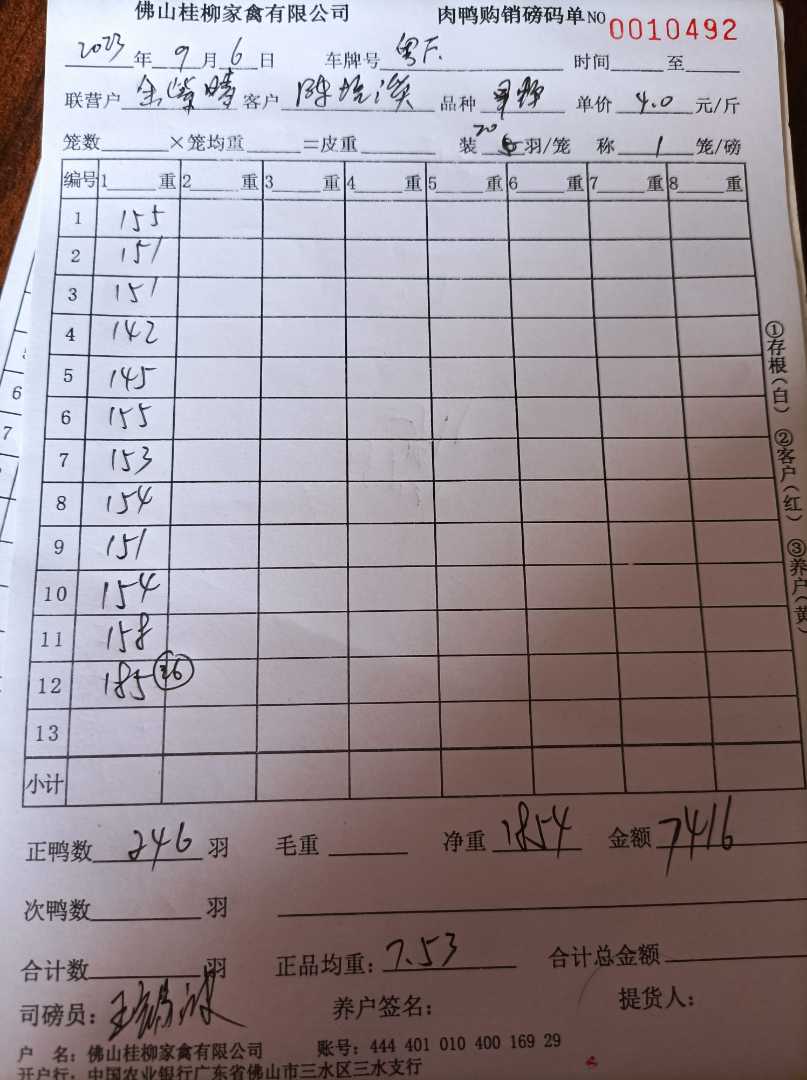 佛山桂柳家禽有限公司 肉鸭购销磅码单 NO 0010492
2023年 9月 6日 车牌号 粤E 时间 至
联营户 客户 陈培 品种 单价 4.0 元/斤
笼数 ×笼均重 =皮重 装 20 羽/笼 称 1 笼/磅
编号 1 重 2 重 3 重 4 重 5 重 6 重 7 重 8 重
1 155
2 151
3 151
4 142
5 145
6 155
7 153
8 154
9 151
10 154
11 158
12 185 26
13
小计
①存根(白) ②客户(红) ③养户(黄)
正鸭数 246 羽 毛重 净重 1854 金额 7416
次鸭数 羽
合计数 羽 正品均重: 7.53 合计总金额
司磅员: 王 养户签名: 提货人:
户 名: 佛山桂柳家禽有限公司 账号: 444 401 010 400 169 29
开户行: 中国农业银行广东省佛山市三水区三水支行
6
7